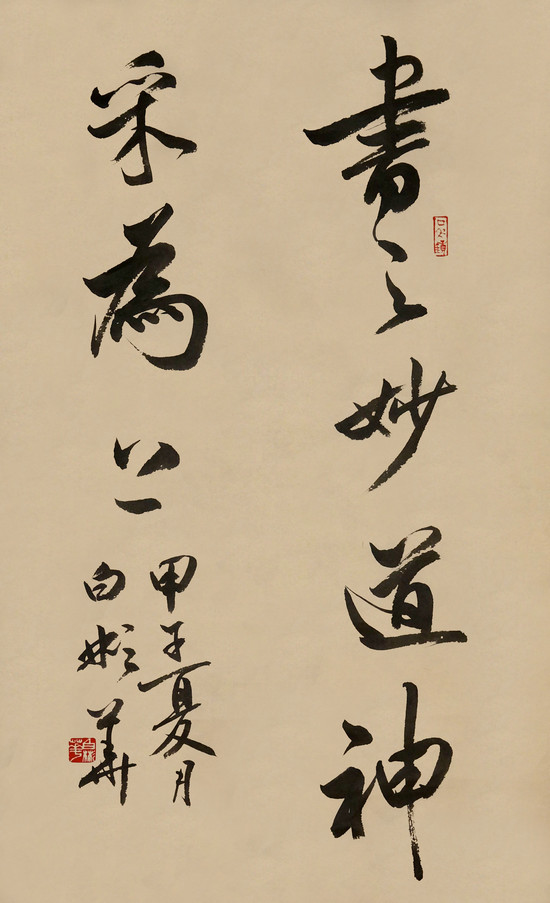 書之妙道神
采為上
甲子夏月
白彬華